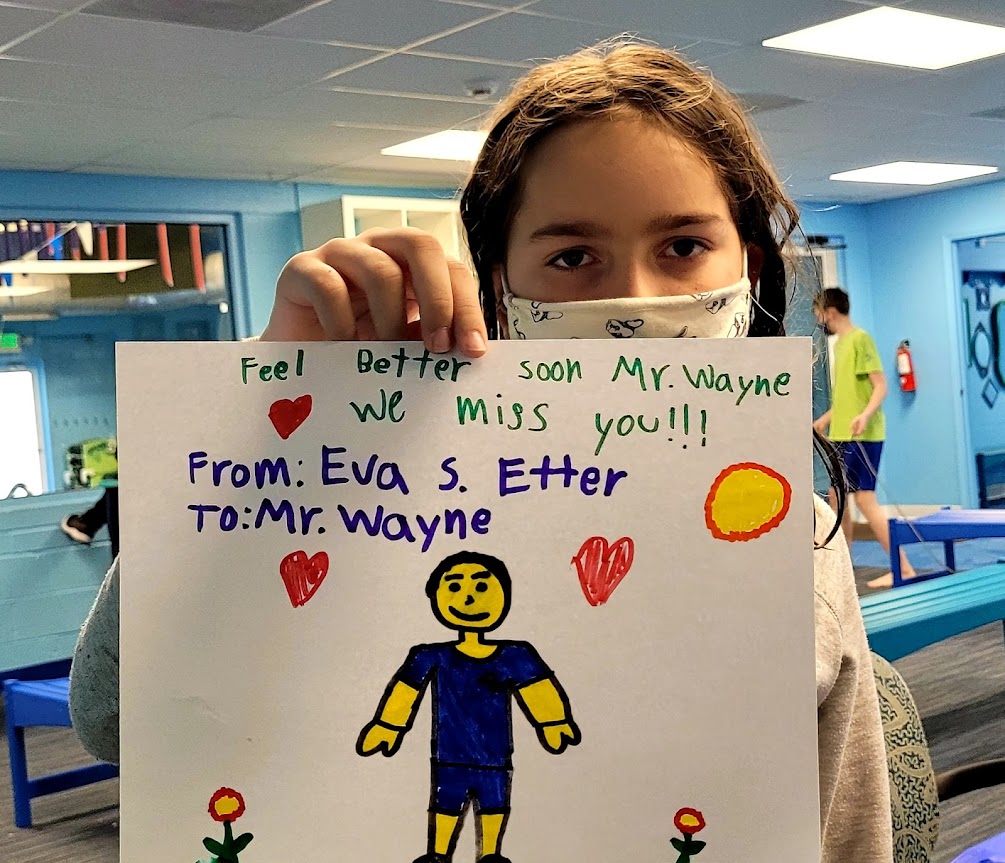 Feel Better soon Mr. Wayne
We miss you!!!
From: Eva S. Etter
To: Mr. Wayne